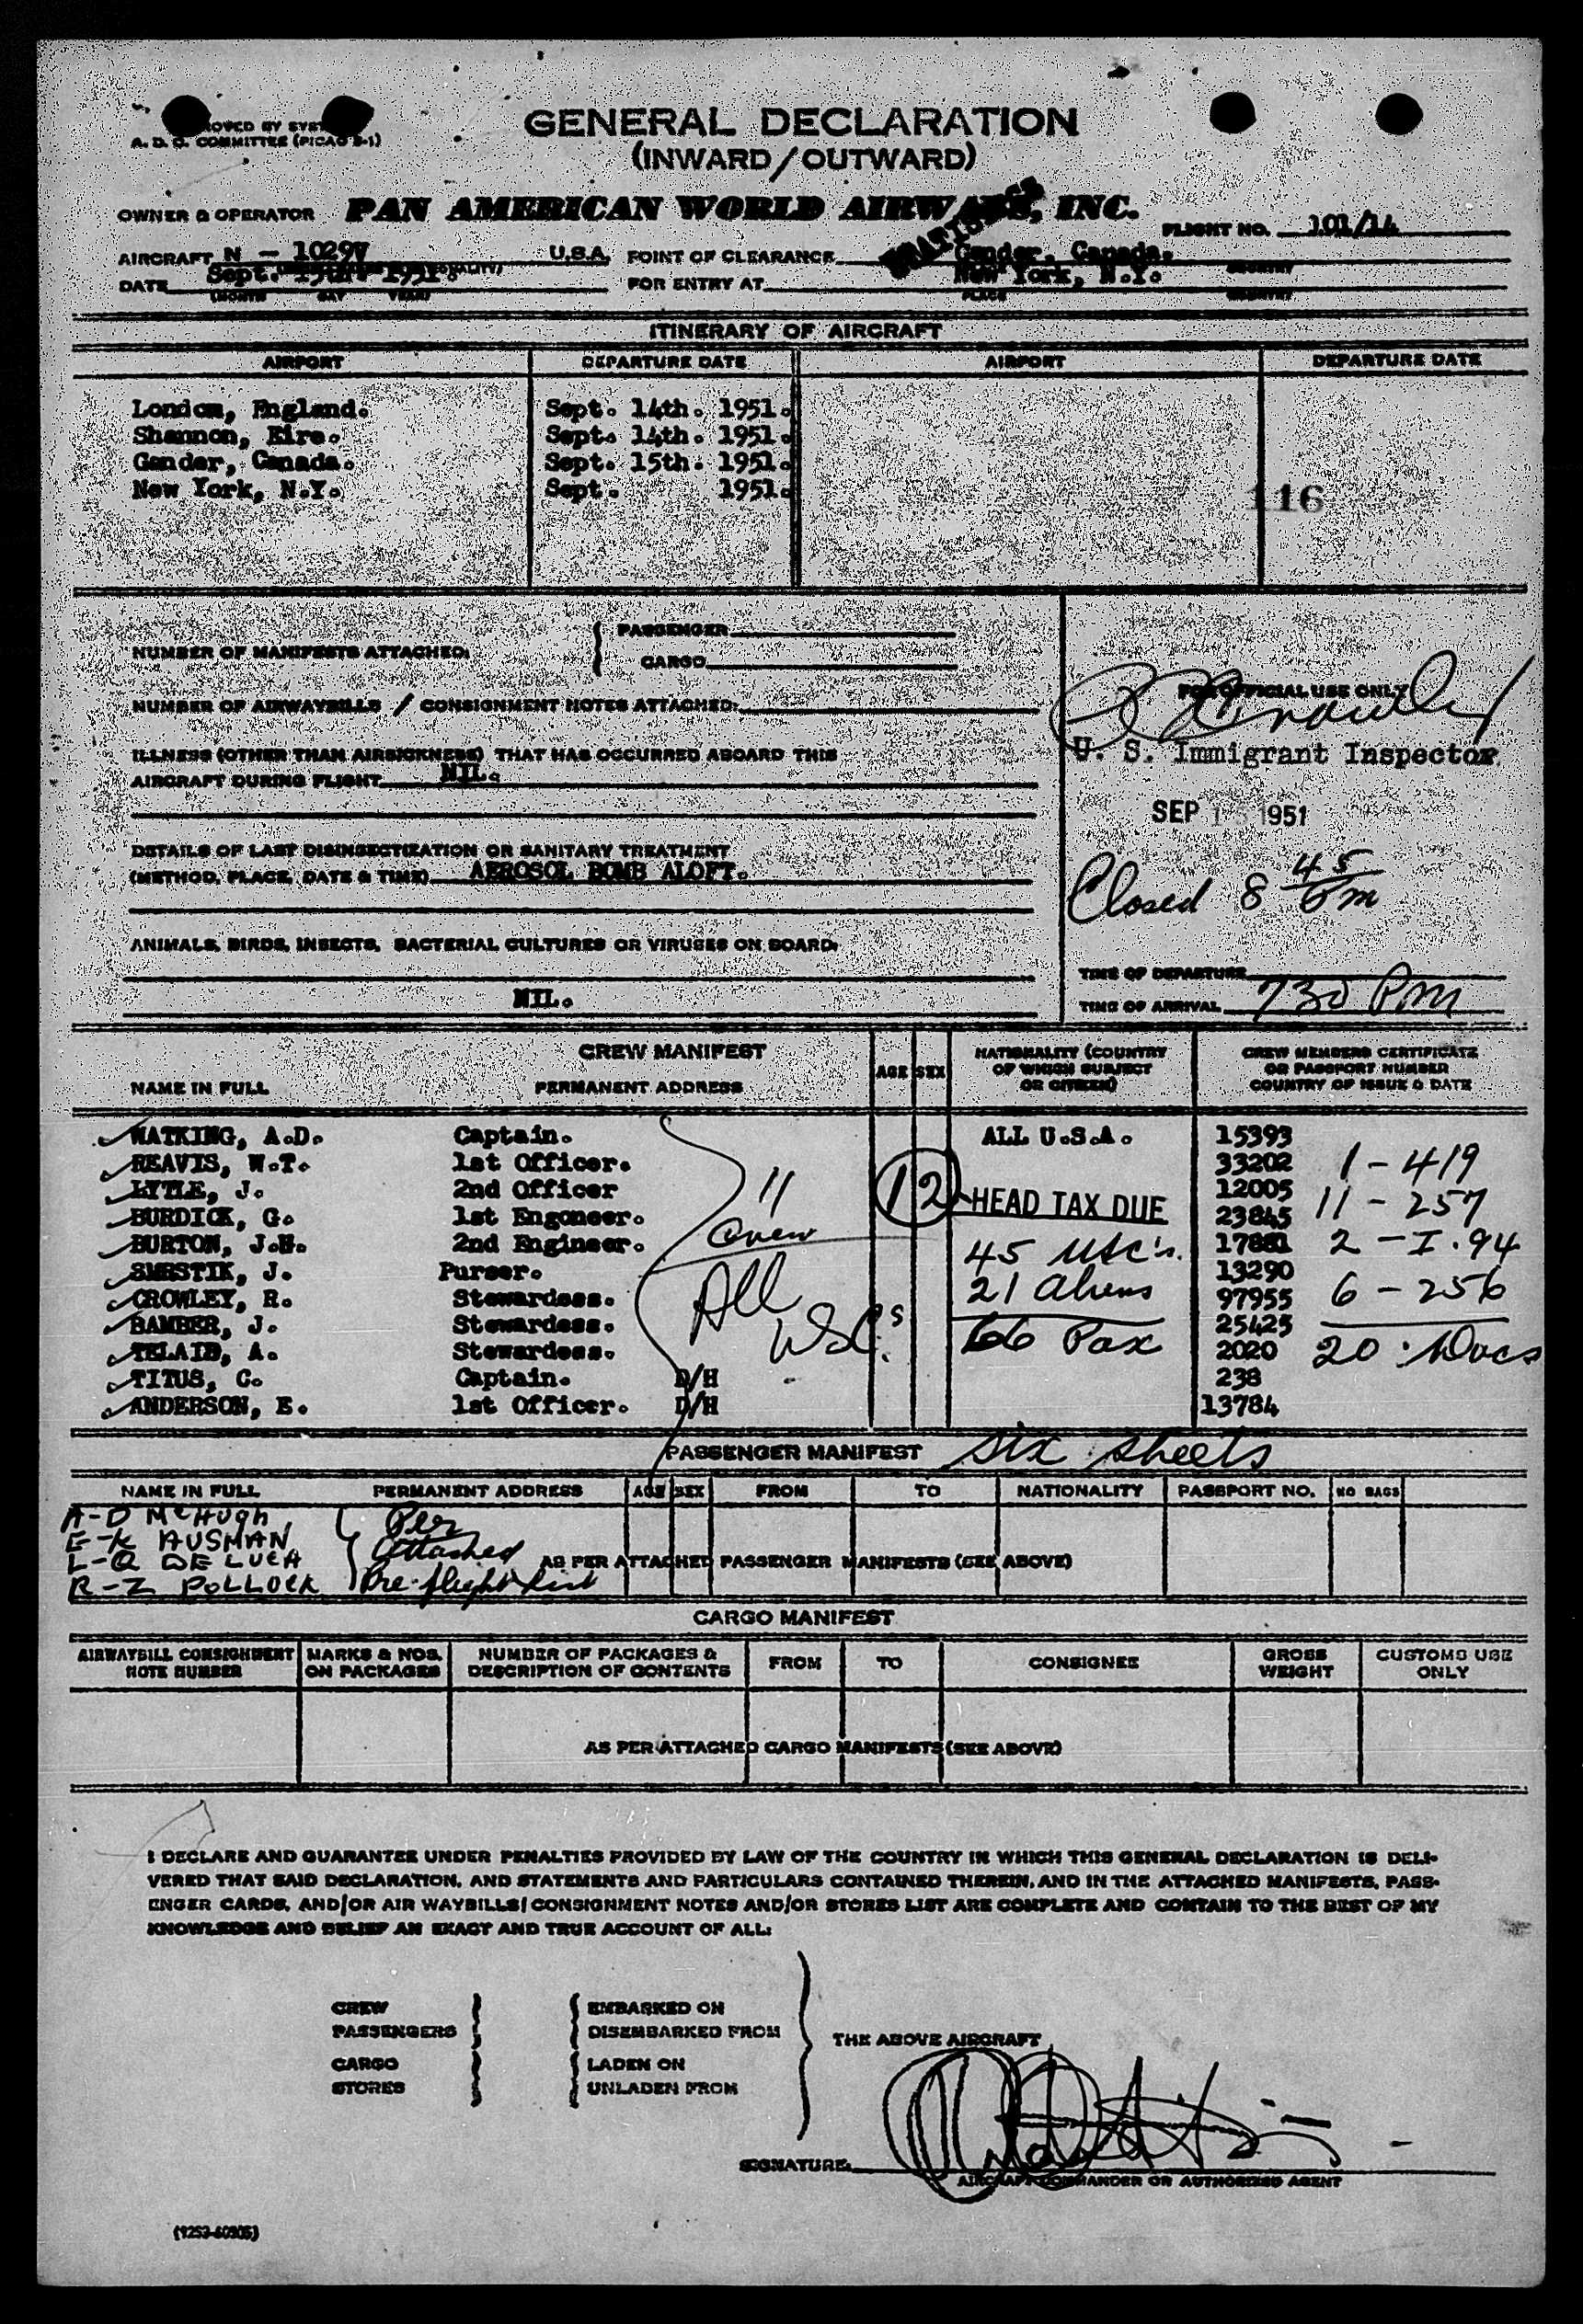 GENERAL DECLARATION
(INWARD/OUTWARD)
A. D. C. COMMITTEE (PICAO S-1)
OWNER & OPERATOR PAN AMERICAN WORLD AIRWAYS, INC.
FLIGHT NO. 101/14
AIRCRAFT N - 1029V U.S.A. POINT OF CLEARANCE Gander, Canada.
DATE Sept. 15th. 1951. FOR ENTRY AT New York, N.Y.
(MONTH DAY YEAR) PLACE COUNTRY
ITINERARY OF AIRCRAFT
AIRPORT DEPARTURE DATE AIRPORT DEPARTURE DATE
London, England. Sept. 14th. 1951.
Shannon, Eire. Sept. 14th. 1951.
Gander, Canada. Sept. 15th. 1951.
New York, N.Y. Sept. 1951.
116
NUMBER OF MANIFESTS ATTACHED: PASSENGER
CARGO
NUMBER OF AIRWAYBILLS / CONSIGNMENT NOTES ATTACHED:
ILLNESS (OTHER THAN AIRSICKNESS) THAT HAS OCCURRED ABOARD THIS
AIRCRAFT DURING FLIGHT NIL.
DETAILS OF LAST DISINSECTIZATION OR SANITARY TREATMENT
(METHOD, PLACE, DATE & TIME) AEROSOL BOMB ALOFT.
ANIMALS, BIRDS, INSECTS, BACTERIAL CULTURES OR VIRUSES ON BOARD:
NIL.
FOR OFFICIAL USE ONLY
Crowley
U. S. Immigrant Inspector
SEP 15 1951
Closed 8 45 Pm
TIME OF DEPARTURE
TIME OF ARRIVAL 730 Pm
CREW MANIFEST
NAME IN FULL PERMANENT ADDRESS AGE SEX NATIONALITY (COUNTRY OF WHICH SUBJECT OR CITIZEN) CREW MEMBERS CERTIFICATE OR PASSPORT NUMBER COUNTRY OF ISSUE & DATE
WATKING, A.D. Captain. ALL U.S.A. 15393
REAVIS, W.T. 1st Officer. 33202 1 - 419
LYTLE, J. 2nd Officer 12005
BURDICK, G. 1st Engoneer. 23845 11 - 257
BURTON, J.H. 2nd Engineer. 17881 2 - I.94
SMRSTIK, J. Purser. 13290
CROWLEY, R. Stewardess. 97955 6 - 256
BAMBER, J. Stewardess. 25425
TELAID, A. Stewardess. 2020 20 Docs
TITUS, C. Captain. D/H 238
ANDERSON, E. 1st Officer. D/H 13784
11 Crew
All USC's
12 HEAD TAX DUE
45 USC's.
21 Aliens
66 Pax
PASSENGER MANIFEST Six Sheets
NAME IN FULL PERMANENT ADDRESS AGE SEX FROM TO NATIONALITY PASSPORT NO. NO BAGS
A-D McHugh
E-K AUSMAN
L-Q DE LUCA
R-Z POLLOCK
Per
attached
Pre-flight list
AS PER ATTACHED PASSENGER MANIFESTS (SEE ABOVE)
CARGO MANIFEST
AIRWAYBILL CONSIGNMENT NOTE NUMBER MARKS & NOS. ON PACKAGES NUMBER OF PACKAGES & DESCRIPTION OF CONTENTS FROM TO CONSIGNEE GROSS WEIGHT CUSTOMS USE ONLY
AS PER ATTACHED CARGO MANIFESTS (SEE ABOVE)
I DECLARE AND GUARANTEE UNDER PENALTIES PROVIDED BY LAW OF THE COUNTRY IN WHICH THIS GENERAL DECLARATION IS DELI-
VERED THAT SAID DECLARATION, AND STATEMENTS AND PARTICULARS CONTAINED THEREIN, AND IN THE ATTACHED MANIFESTS, PASS-
ENGER CARDS, AND/OR AIR WAYBILLS/CONSIGNMENT NOTES AND/OR STORES LIST ARE COMPLETE AND CONTAIN TO THE BEST OF MY
KNOWLEDGE AND BELIEF AN EXACT AND TRUE ACCOUNT OF ALL:
CREW EMBARKED ON
PASSENGERS DISEMBARKED FROM
THE ABOVE AIRCRAFT
CARGO LADEN ON
STORES UNLADEN FROM
SIGNATURE:
AIRCRAFT COMMANDER OR AUTHORIZED AGENT